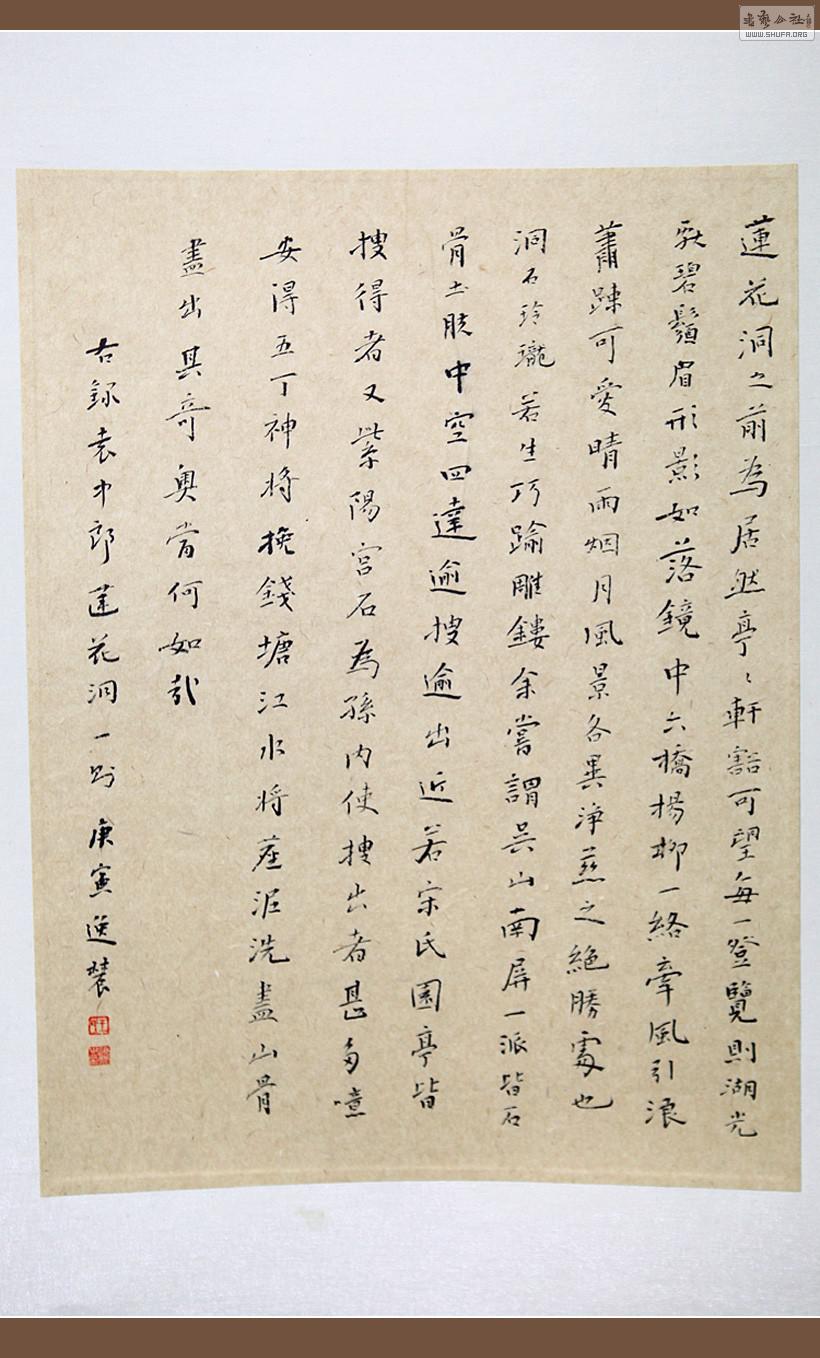 蓮花洞之前為居然亭〻軒豁可望每一登覽則湖光
献碧鬚眉形影如落鏡中六橋楊柳一絡牽風引浪
蕭踈可愛晴雨烟月風景各異淨慈之絕勝處也
洞石玲瓏若生巧踰雕鏤余嘗謂吳山南屏一派皆石
骨土肤中空四達逾搜逾出近若宋氏園亭皆
搜得者又紫陽宮石為孫內使搜出者甚多噫
安得五丁神將挽錢塘江水將塵泥洗盡山骨
盡出其奇奧當何如哉
右錄袁中郎蓮花洞一則 庚寅逸
書藝公社
WWW.SHUFA.ORG